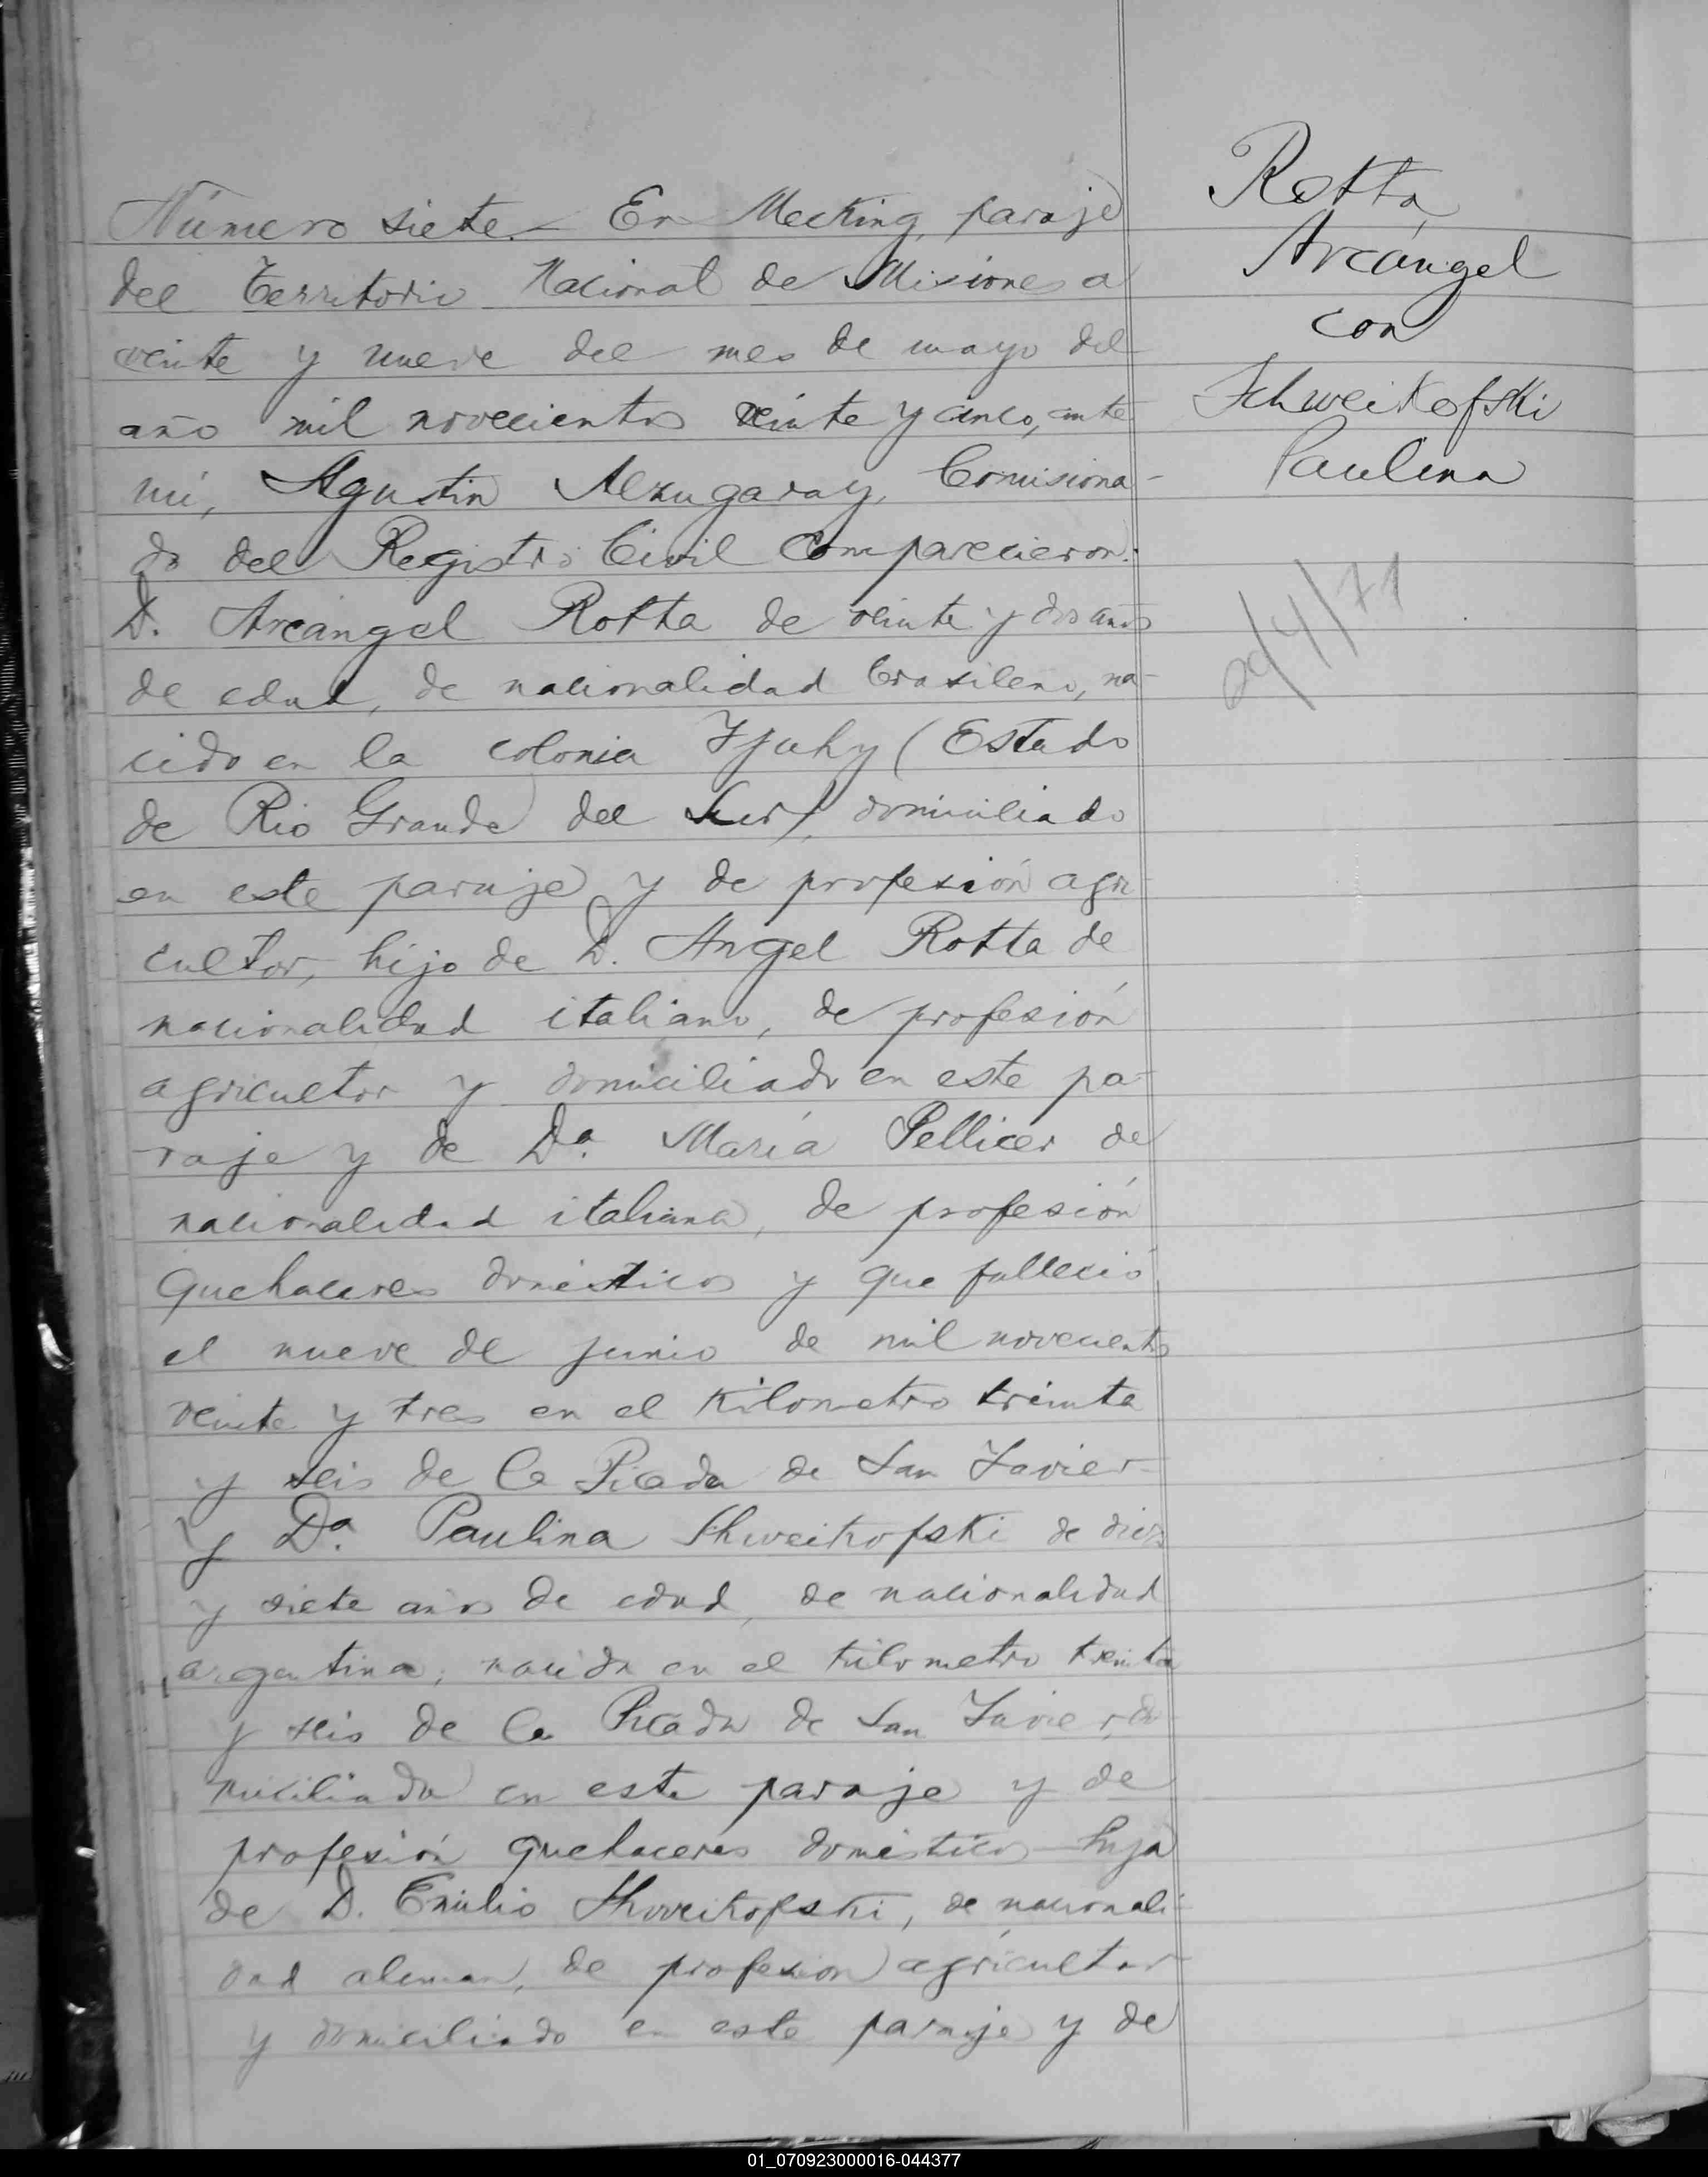 Número siete.- En Mecking, paraje
del Territorio Nacional de Misiones a
veinte y nueve del mes de mayo del
año mil novecientos veinte y cinco, ante
mí, Agustin Alzugaray, Comisiona-
do del Registro Civil Comparecieron:
D. Arcángel Rotta de veinte y dos años
de edad, de nacionalidad brasileno, na-
cido en la colonia Ijuhy (Estado
de Rio Grande del Sur), domiciliado
en este paraje y de profesión agri
cultor, hijo de D. Angel Rotta de
nacionalidad italiano, de profesión
agricultor y domiciliado en este pa-
raje y de Da. María Pellicer de
nacionalidad italiana, de profesión
quehaceres domésticos y que falleció
el nueve de junio de mil novecientos
veinte y tres en el Kilometro treinta
y seis de la Picada de San Javier
y Da. Paulina Shweikofski de diez
y siete años de edad, de nacionalidad
argentina, nacida en el kilometro treinta
y seis de la Picada de San Javier, do-
miciliada en este paraje y de
profesión quehaceres domésticos hija
de D. Emilio Shweikofski, de nacionali-
dad aleman, de profesion agricultor
y domiciliado en este paraje y de
Rotta,
Arcángel
con
Schweikofski
Paulina
29/4/71
01_070923000016-044377